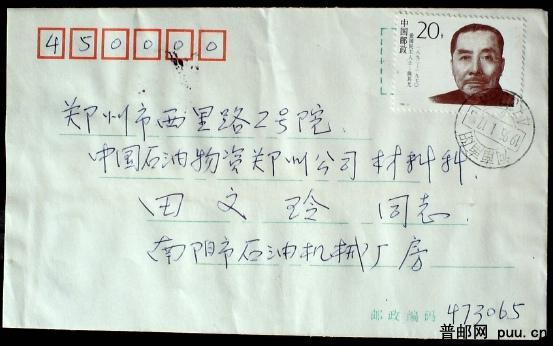 450000
20分
中国邮政
郑州市西里路2号院.
中国石油物资郑州公司材料科.
田文玲 同志.
南阳市石油机械厂房
邮政编码 473065
普邮网 puu.cn